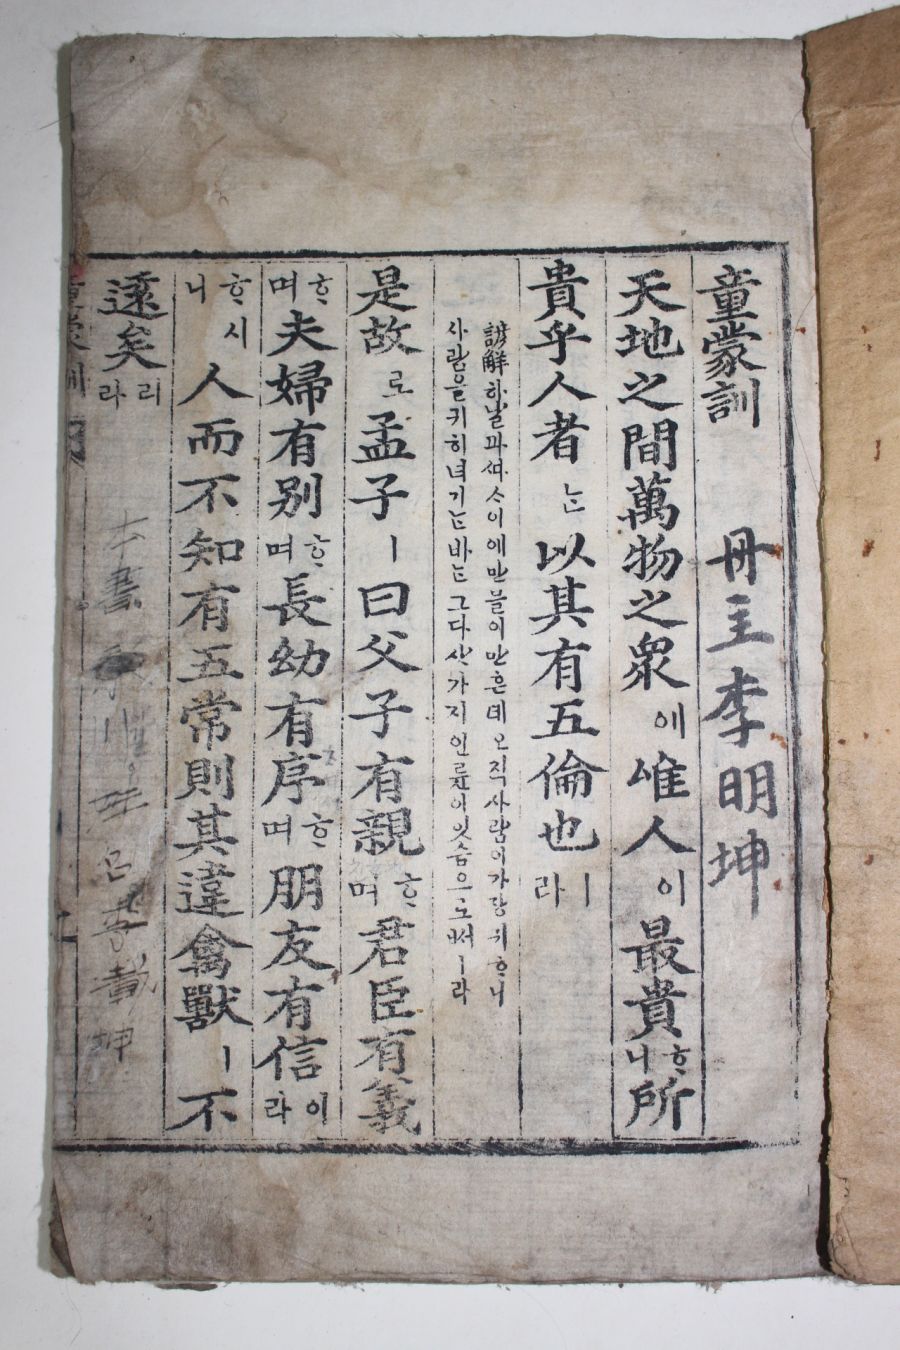 童蒙訓 冊主李明坤
天地之間萬物之衆에唯人이最貴ᄒᆞ니所
貴乎人者ᄂᆞᆫ以其有五倫也ㅣ라
諺解하날과ᄯᅡ사이에만물이만흔데오직사람이가장귀ᄒᆞ니
사람을귀히녀기ᄂᆞᆫ바ᄂᆞᆫ그다ᄉᆞᆺ가지인륜이잇슴으로ᄡᅥㅣ라
是故로孟子ㅣ曰父子有親ᄒᆞ며君臣有義
ᄒᆞ며夫婦有別ᄒᆞ며長幼有序ᄒᆞ며朋友有信이라
ᄒᆞ시니人而不知有五常則其違禽獸ㅣ不
遠矣리라